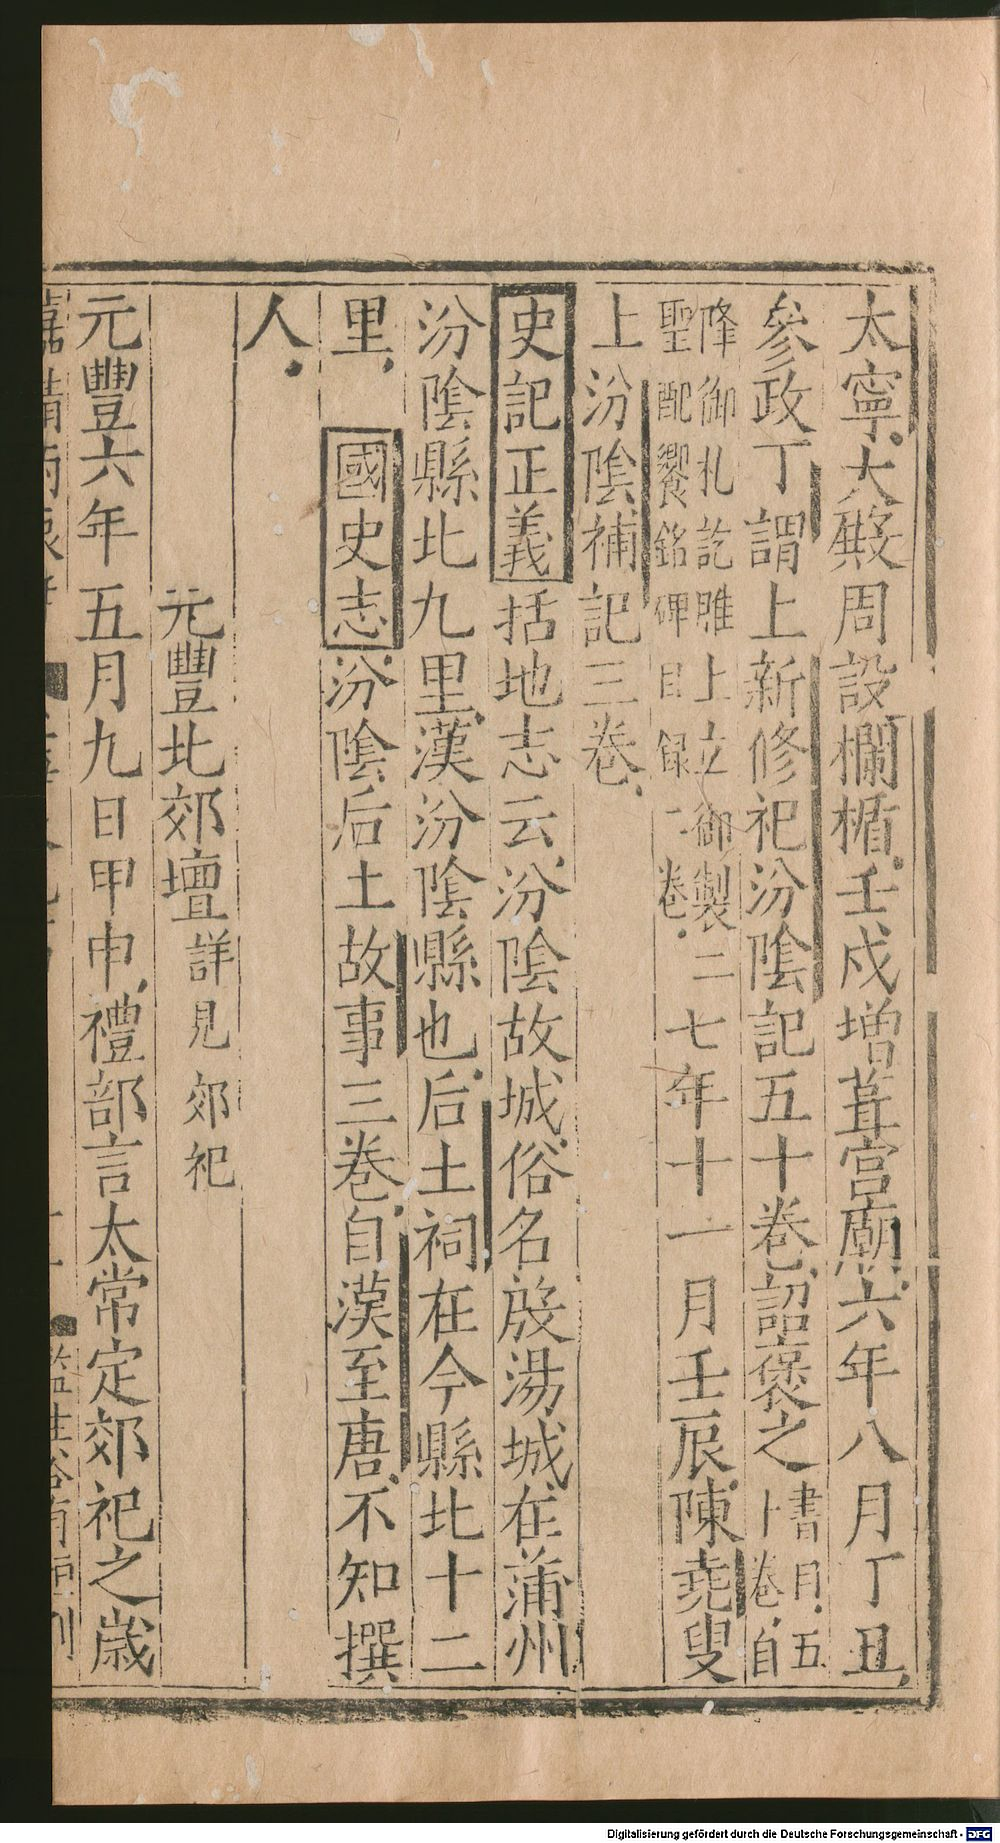 太寧大殿周設欄楯壬戍增葺宫廟六年八月丁丑
參政丁謂上新修祀汾陰記五十卷詔褒之書目五十卷自
降御札訖雎上立御製二
聖配饗銘碑目録一卷
七年十一月壬辰陳堯叟
上汾隂補記三卷
史記正義括地志云汾陰故城俗名殷湯城在蒲州
汾陰縣北九里漢汾陰縣也后土祠在今縣北十二
里國史志汾陰后土故事三卷自漢至唐不知撰
人
元豐北郊壇詳見郊祀
元豐六年五月九日甲申禮部言太常定郊祀之歲